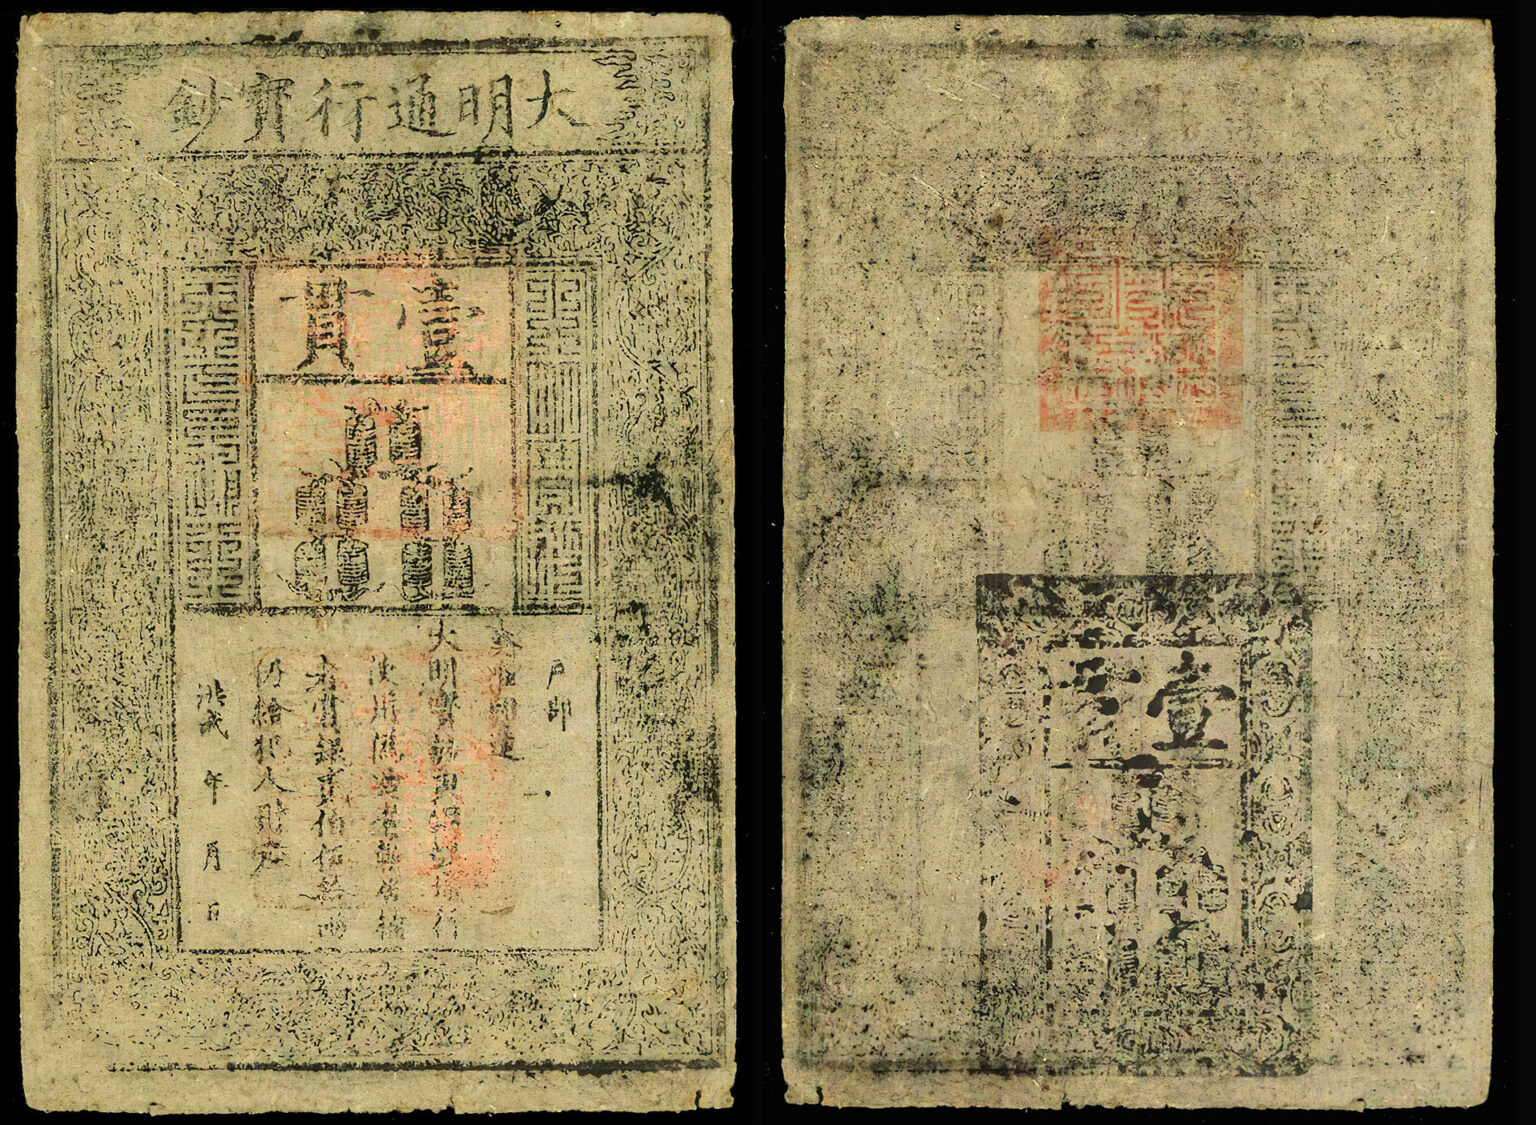 大明通行寶鈔
壹貫
戶部
奏准印造
大明寶鈔與銅錢通行
使用偽造者斬告捕
者賞銀貳佰伍拾兩
仍給犯人財產
洪武 年 月 日
壹貫